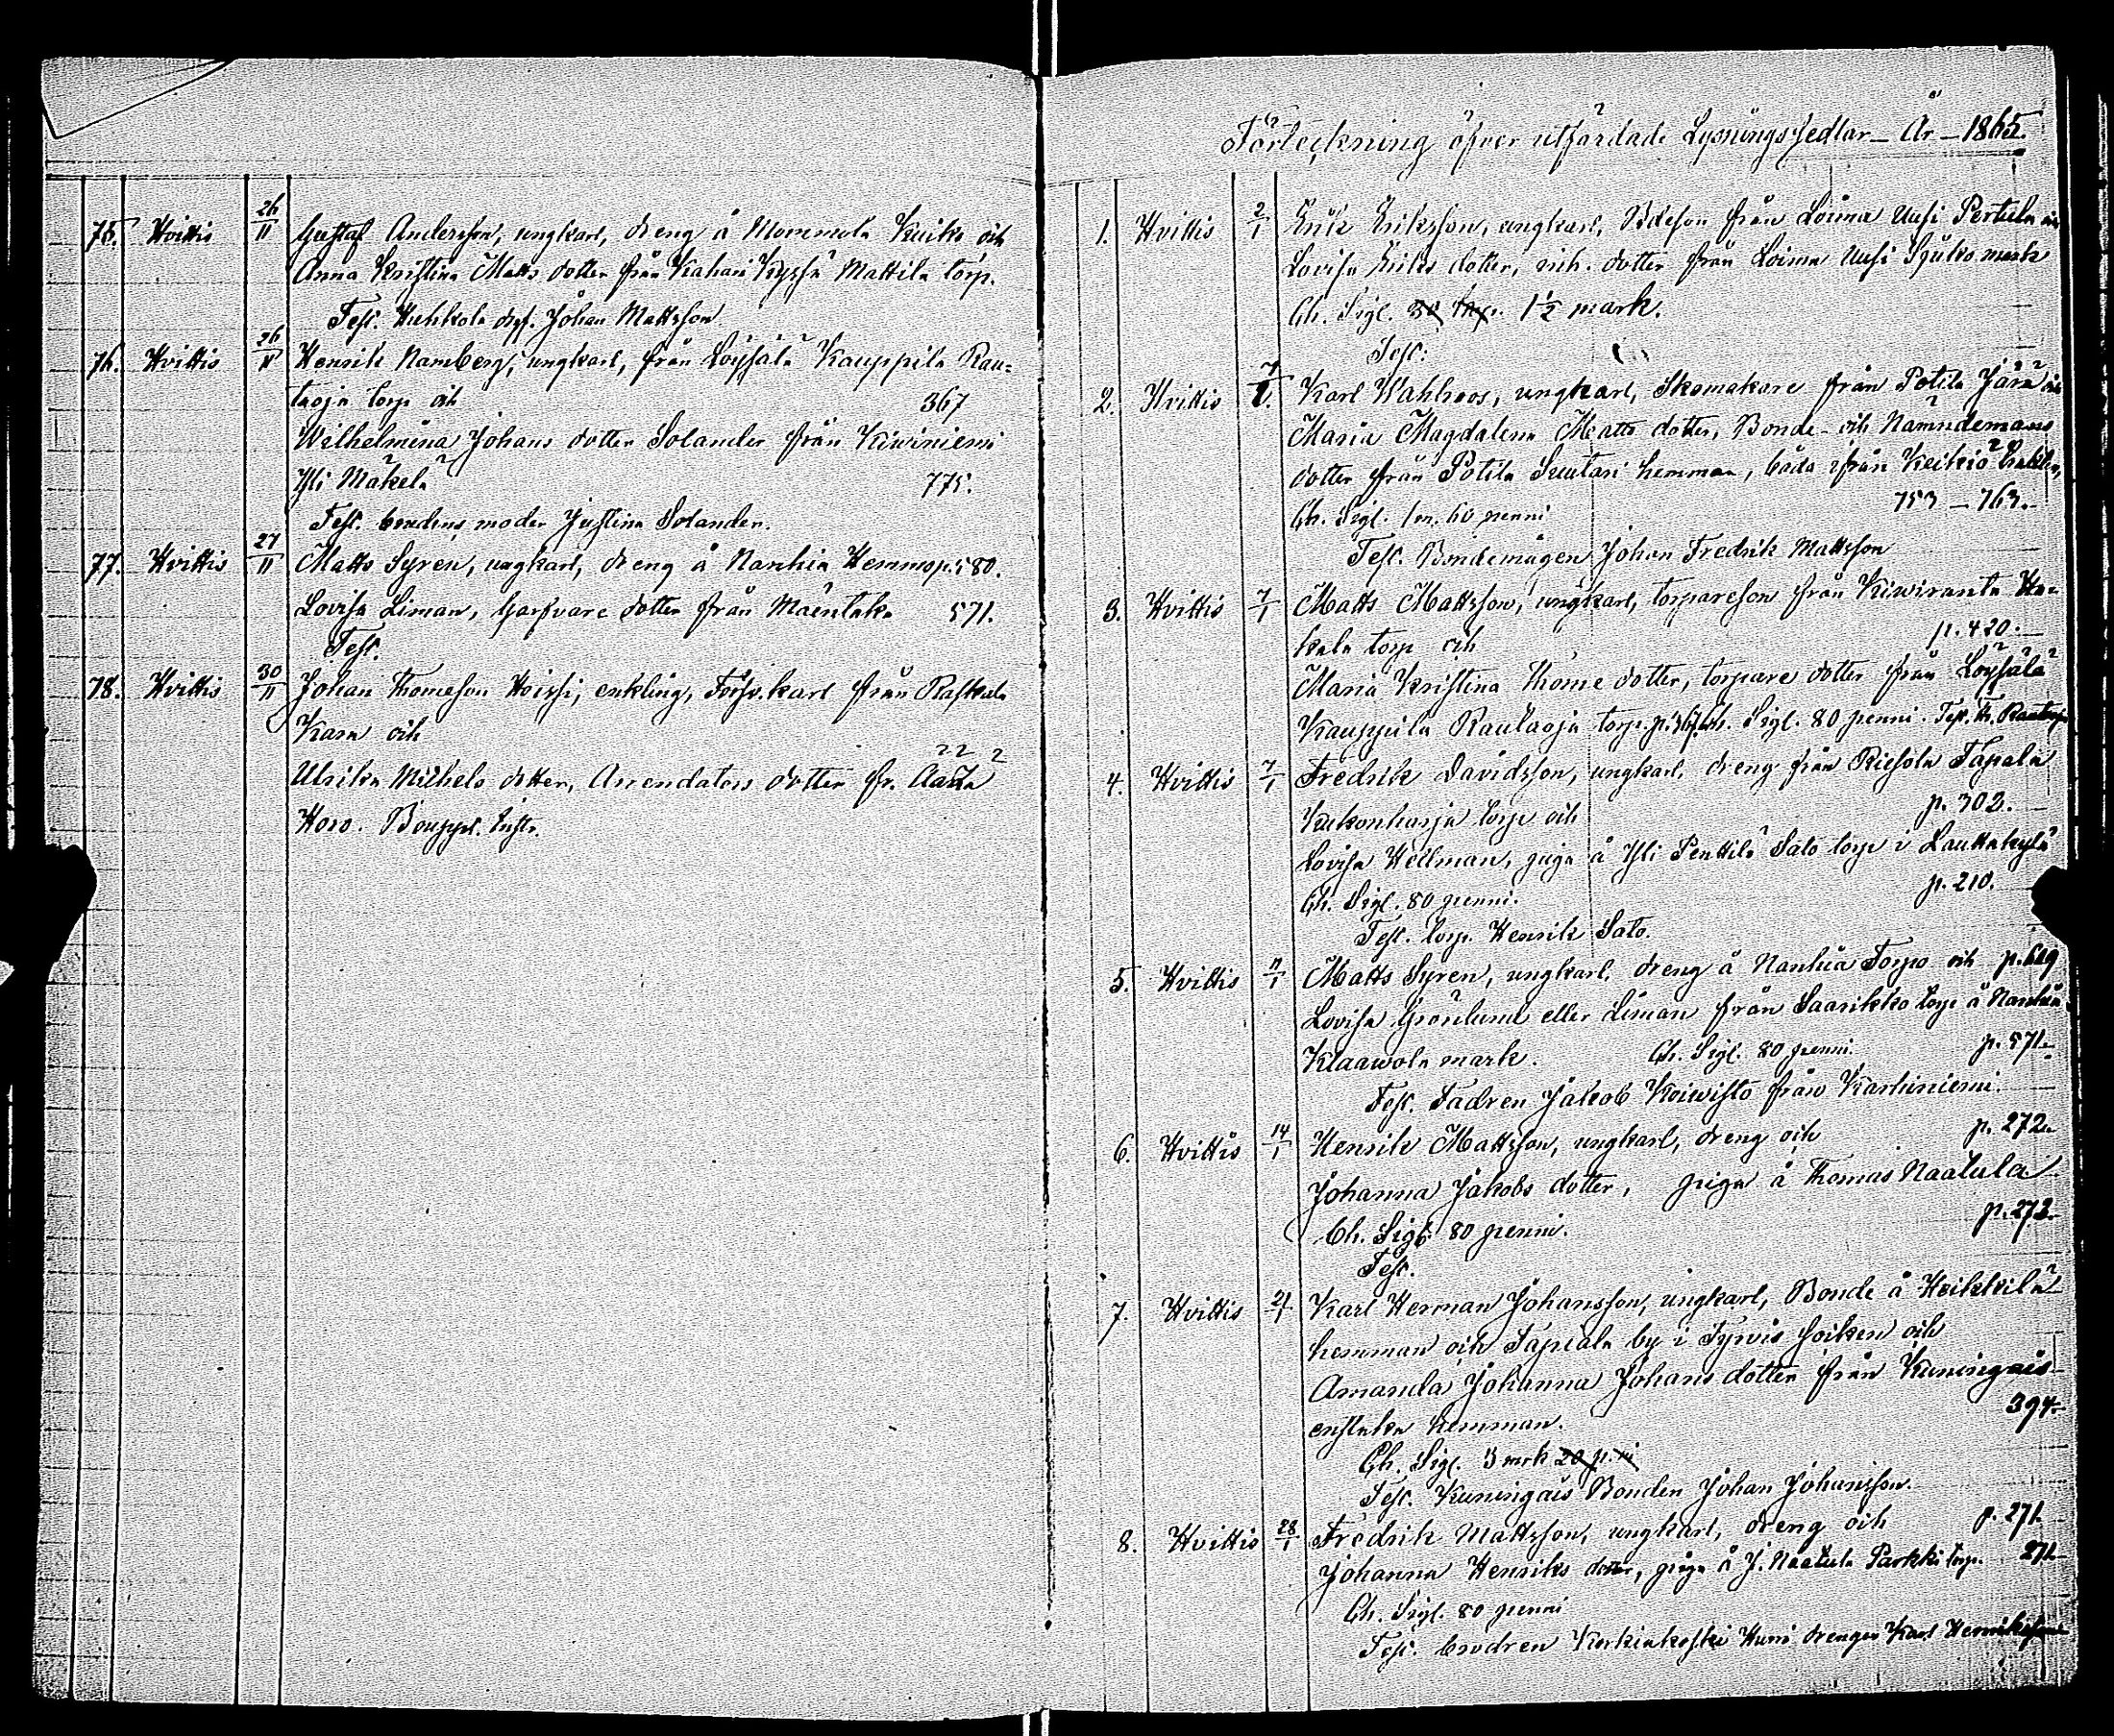 75. Hvittis 26/11 Gustaf Andersson, ungkarl, dreng å Mommola Kuiko och
Anna Kristina Matts dotter från Kahari Kyssä Mattila torp.
Test. Huhkola drg. Johan Mattsson
76. Hvittis 26/11 Henrik Namberg, ungkarl, från Löysälä Kauppila Rau-
taoja torp och 367
Wilhelmina Johans dotter Solander från Kiviniemi
Yli Mäkelä 775.
Test. brudens moder Justina Solander.
77. Hvittis 27/11 Matts Syren, ungkarl, dreng å Nanhia Hemmo p. 580.
Lovisa Liman, Garfvare dotter från Mäentaka 571.
Test.
78. Hvittis 30/11 Johan Thomeson Hoissi, enkling, Försv.karl från Raskala
Kara och
Ulrika Michels dotter, Arrendators dotter fr.
Horo. Bouppt. Instr.
Förteckning öfver utfärdade Lysningssedlar – År – 1865.
1. Hvittis 2/1 Erik Eriksson, ungkarl, Bdeson från Loima Uusi Pertula och
Lovisa Eriks dotter, inh. dotter från Loima Uusi Sjuko mark
Ch. Sigl. 30 1 1/2 mark.
Test:
2. Hvittis 7/1. Karl Wahlroos, ungkarl, Skomakare från Potila Järä och
Maria Magdalena Matts dotter, Bonde- och Nämndemans
dotter från Potila Suutari hemman, båda ifrån Keikiö
Ch. Sigl. 1 m. 60 penni 753 – 763.
Test. Bondemågen Johan Fredrik Mattsson
3. Hvittis 7/1 Matts Mattsson, ungkarl, torpareson från Kiviranta Ha-
kala torp och p. 420.
Maria Kristina Thome dotter, torpare dotter från Löysälä
Kauppila Rautaoja torp. p. 367. Ch. Sigl. 80 penni. Test. Th. Rautaoja
4. Hvittis 7/1 Fredrik Davidsson, ungkarl, dreng från Riesola Tapala
Kukonharja torp och p. 302.
Lovisa Hellman, piga å Yli Penttilä Sato torp i Lauttakylä
p. 210.
Ch. Sigl. 80 penni.
Test. torp. Henrik Sato.
5. Hvittis 11/1 Matts Syren, ungkarl, dreng å Nanhia Torpo och p. 619
Lovisa Grönlund eller Liman från Saarikko torp å Nanhia
Klaavola mark. Ch. Sigl. 80 penni. p. 571.
Test. Fadren Jakob Koivisto från Karhiniemi.
6. Hvittis 14/1 Henrik Mattsson, ungkarl, dreng och p. 272.
Johanna Jakobs dotter, piga å Thomas Naatula
Ch. Sigl. 80 penni. p. 273.
Test.
7. Hvittis 21/1 Karl Herman Johansson, ungkarl, Bonde å Heikkilä
hemman och Tapiala by i Tyrvis socken och
Amanda Johanna Johans dotter från Kuningais
enstaka hemman. 394.
Ch. Sigl. 3 mrk 20 p:ni
Test. Kuningais Bonden Johan Johansson.
8. Hvittis 28/1 Fredrik Mattsson, ungkarl, dreng och p. 271
Johanna Henriks dotter, piga å J. Naatula Parkki torp. 271
Ch. Sigl. 80 penni
Test. brodren Korkiakoski Hurri drengen Karl Henriksson